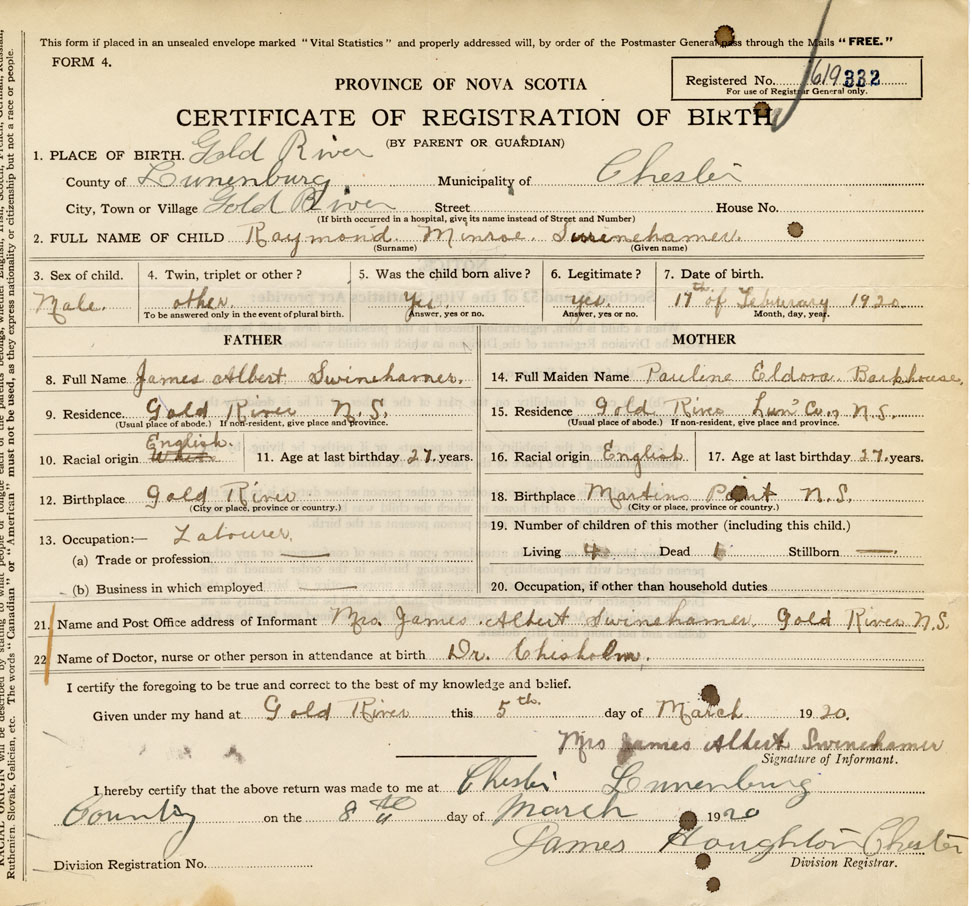 This form if placed in an unsealed envelope marked "Vital Statistics" and properly addressed will, by order of the Postmaster General pass through the Mails "FREE."
FORM 4.
Registered No. 1619 332
For use of Registrar General only.
PROVINCE OF NOVA SCOTIA
CERTIFICATE OF REGISTRATION OF BIRTH
(BY PARENT OR GUARDIAN)
1. PLACE OF BIRTH. Gold River
County of Lunenburg Municipality of Chester
City, Town or Village Gold River Street House No.
(If birth occurred in a hospital, give its name instead of Street and Number)
2. FULL NAME OF CHILD Raymond. Minroe. Swinehamer.
(Surname) (Given name)
3. Sex of child. 4. Twin, triplet or other? 5. Was the child born alive? 6. Legitimate? 7. Date of birth.
Male. other. Yes yes. 17th of Feburary 1920
To be answered only in the event of plural birth. Answer, yes or no. Answer, yes or no. Month, day, year.
FATHER MOTHER
8. Full Name James Albert Swinehamer. 14. Full Maiden Name Pauline Eldora. Barkhouse.
9. Residence. Gold River N.S. 15. Residence Gold River Lun' Co., N.S.
(Usual place of abode.) If non-resident, give place and province. (Usual place of abode.) If non-resident, give place and province.
English.
10. Racial origin 11. Age at last birthday 27. years. 16. Racial origin English 17. Age at last birthday 27. years.
12. Birthplace Gold River 18. Birthplace Martins Point N.S.
(City or place, province or country.) (City or place, province or country.)
13. Occupation:— Labourer. 19. Number of children of this mother (including this child.)
(a) Trade or profession. — Living 4 Dead 1 Stillborn —
(b) Business in which employed — 20. Occupation, if other than household duties
21. Name and Post Office address of Informant Mrs. James Albert Swinehamer Gold River N.S.
22 Name of Doctor, nurse or other person in attendance at birth Dr. Chisholm.
I certify the foregoing to be true and correct to the best of my knowledge and belief.
Given under my hand at Gold River this 5th. day of March. 1920.
Mrs James Albert Swinehamer
Signature of Informant.
I hereby certify that the above return was made to me at Chester Lunenburg
County on the 8th day of March 1920
James Houghton Chester
Division Registrar.
Division Registration No.
RACIAL ORIGIN will be described by stating to what people or tongue each of the parents belongs, whether English, Irish, Scotch, French, German, Russian,
Ruthenien, Slovak, Galician, etc. The words "Canadian" or "American" must not be used, as they express nationality or citizenship but not a race or people.